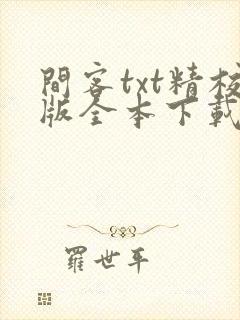 間客txt精校
版全本下載
羅世平